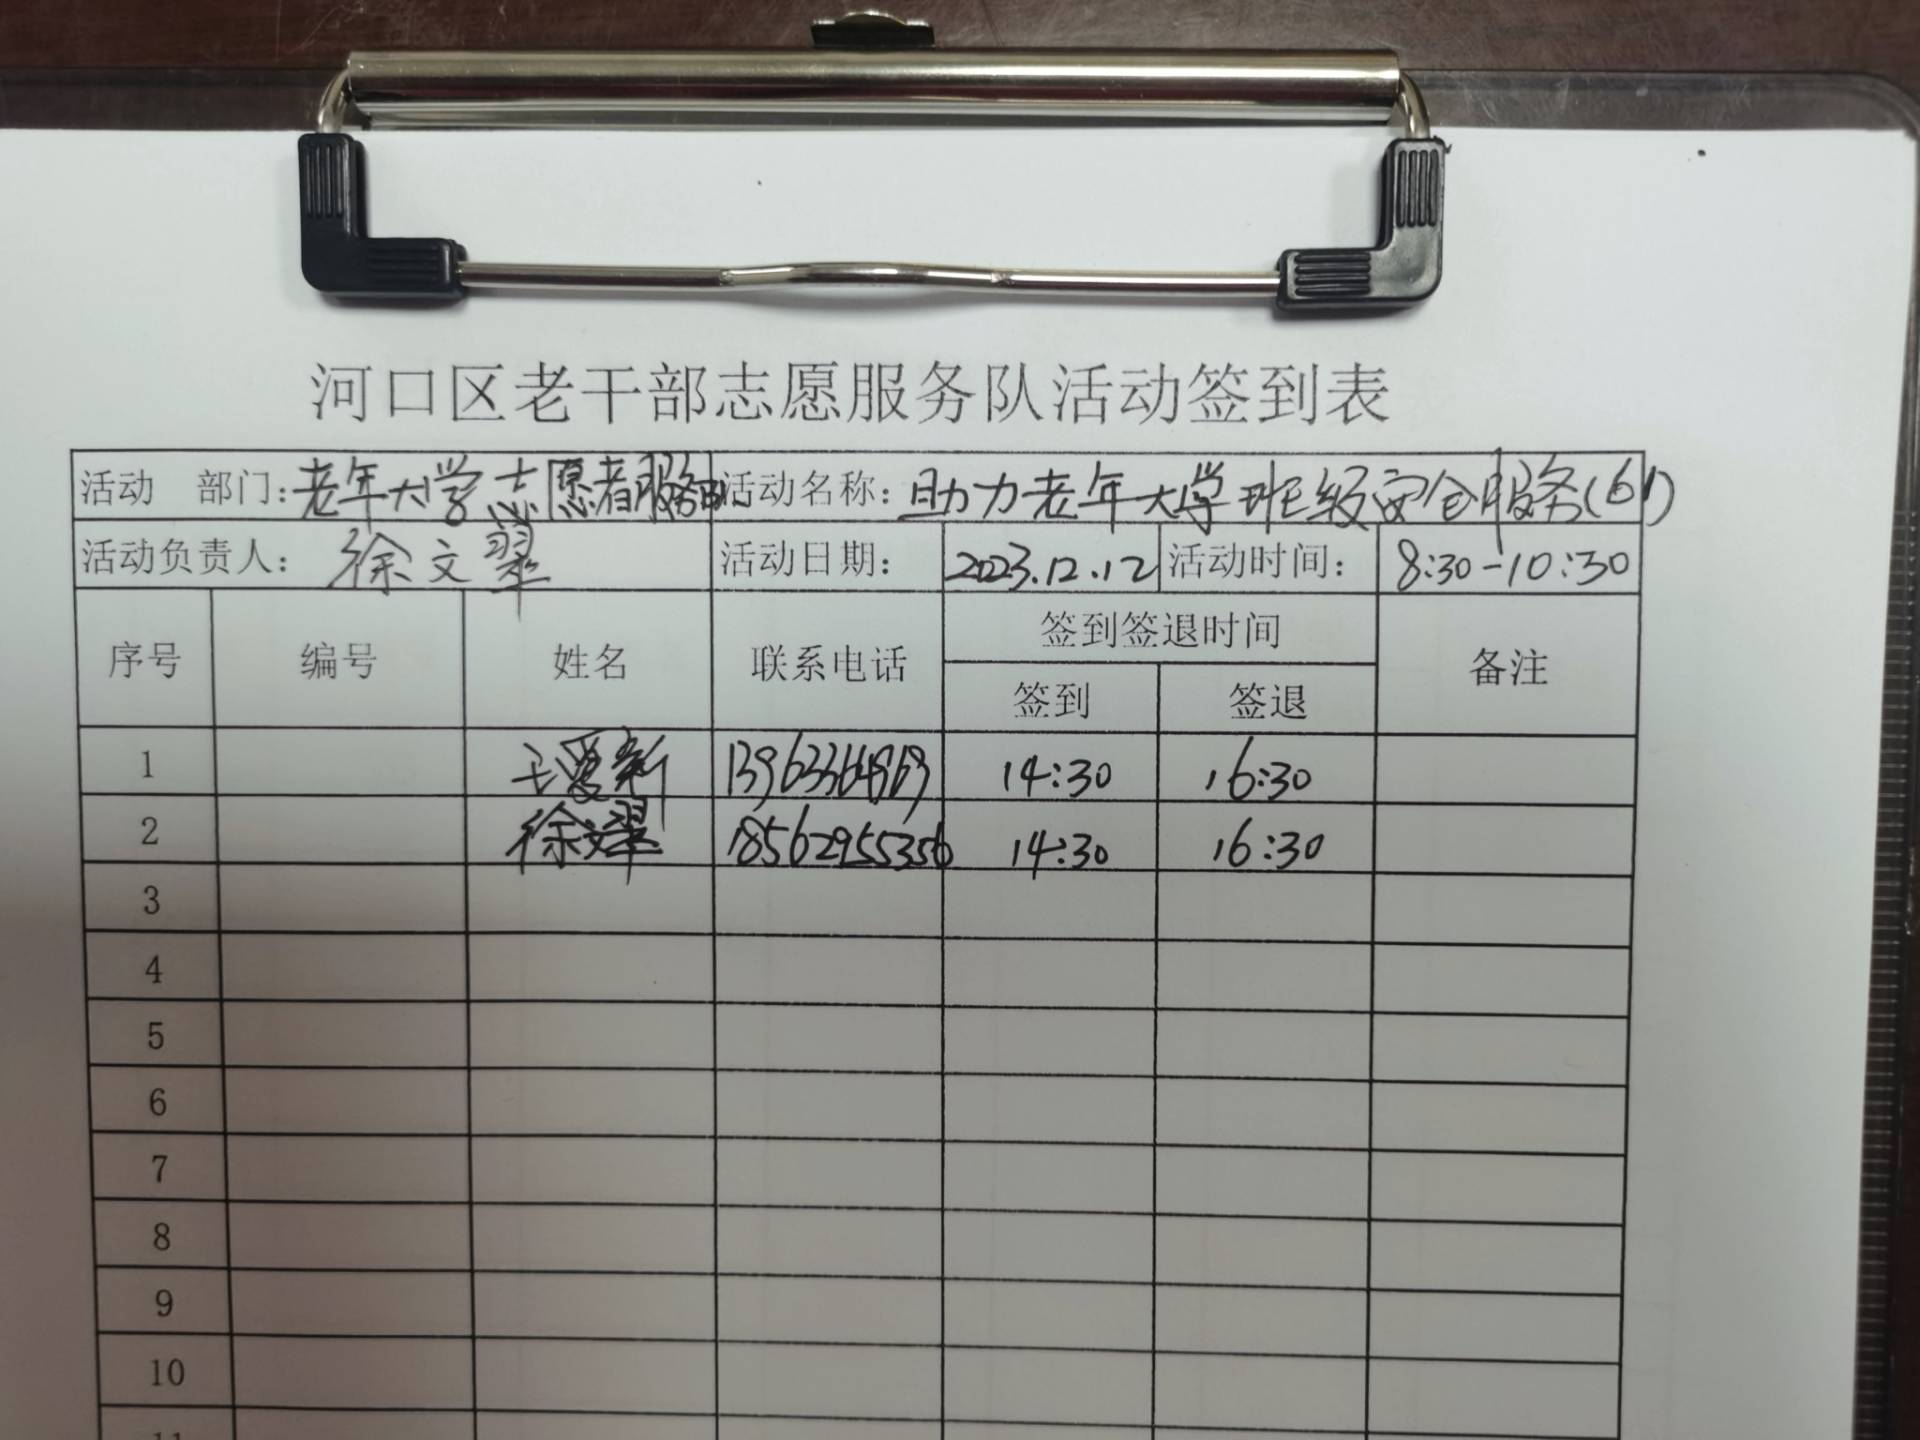 河口区老干部志愿服务队活动签到表
活动 部门: 老年大学志愿者服务队 活动名称: 助力老年大学班级安全服务(61)
活动负责人: 徐文翠 活动日期: 2023.12.12 活动时间: 8:30-10:30
序号 编号 姓名 联系电话 签到签退时间 备注
签到 签退
1 王爱新 13963364969 14:30 16:30
2 徐文翠 18562955356 14:30 16:30
3
4
5
6
7
8
9
10
11